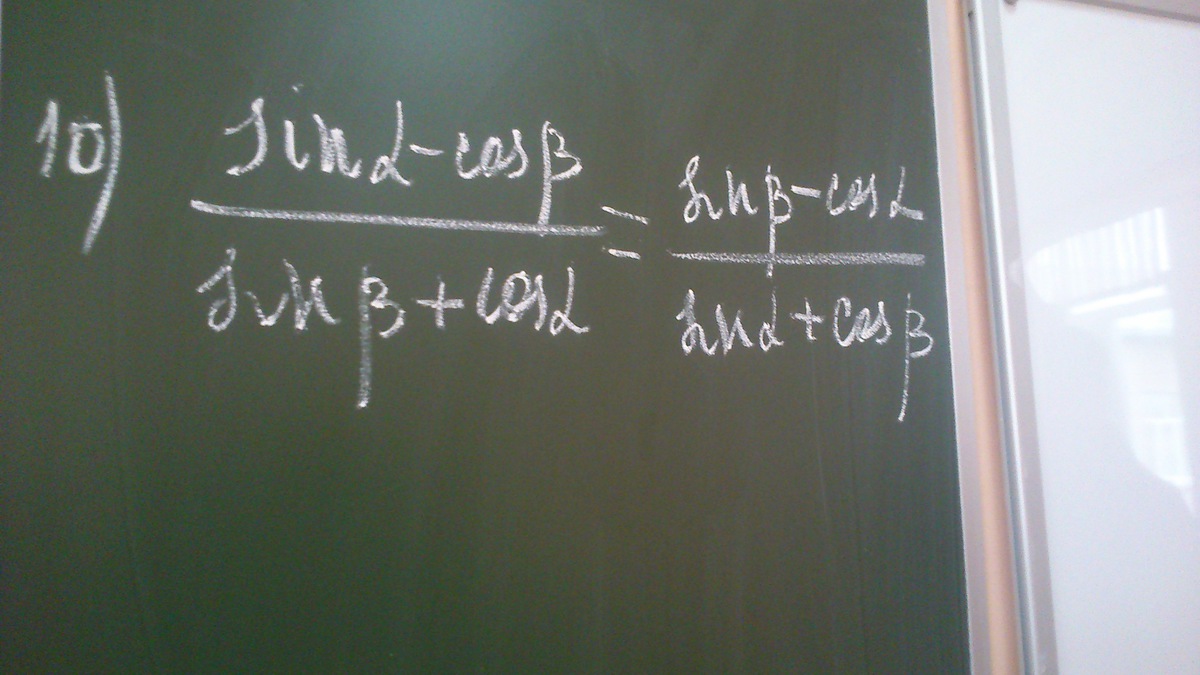 10) sinα - cosβ / sinβ + cosα = sinβ - cosα / sinα + cosβ